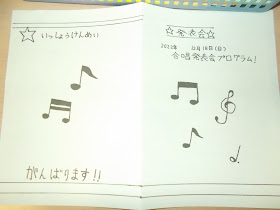 ☆発表会☆
2022年 12月18日(日)
合唱発表会プログラム!
いっしょうけんめい
がんばります!!